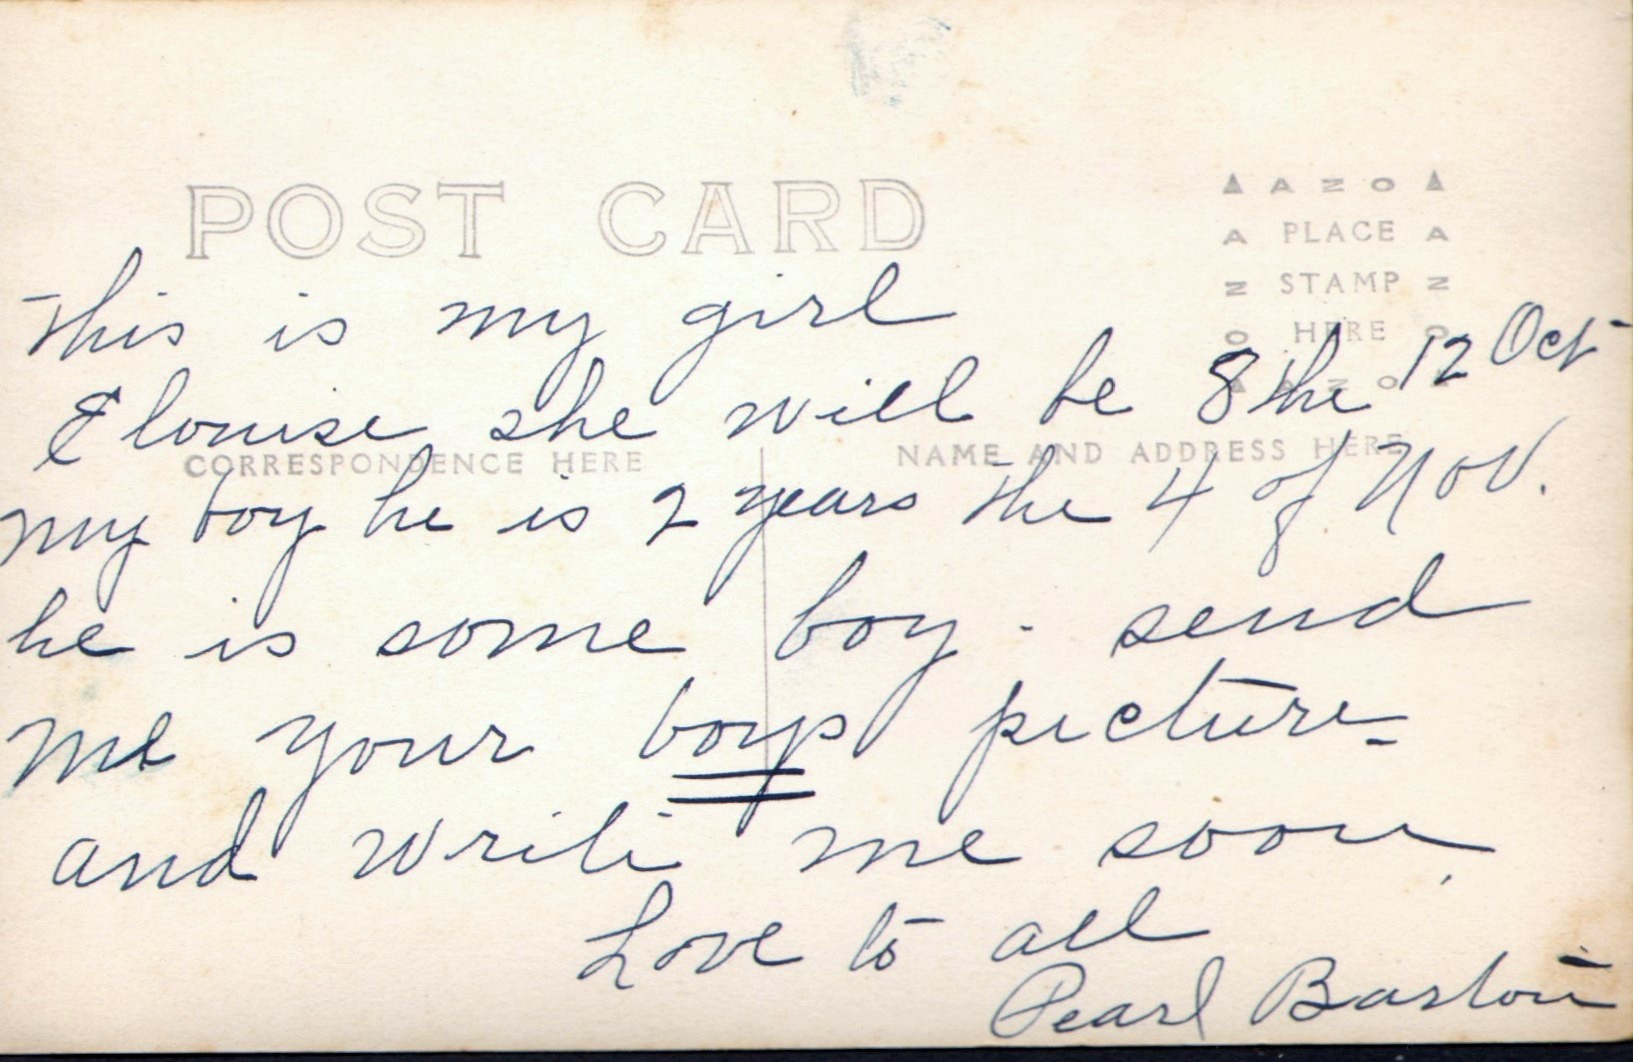 POST CARD
AZO
PLACE
STAMP
HERE
AZO
CORRESPONDENCE HERE
NAME AND ADDRESS HERE
This is my girl
Elouise she will be 8 the 12 Oct
my boy he is 2 years the 4 of Nov.
he is some boy. send
me your boys picture.
and write me soon.
Love to all
Pearl